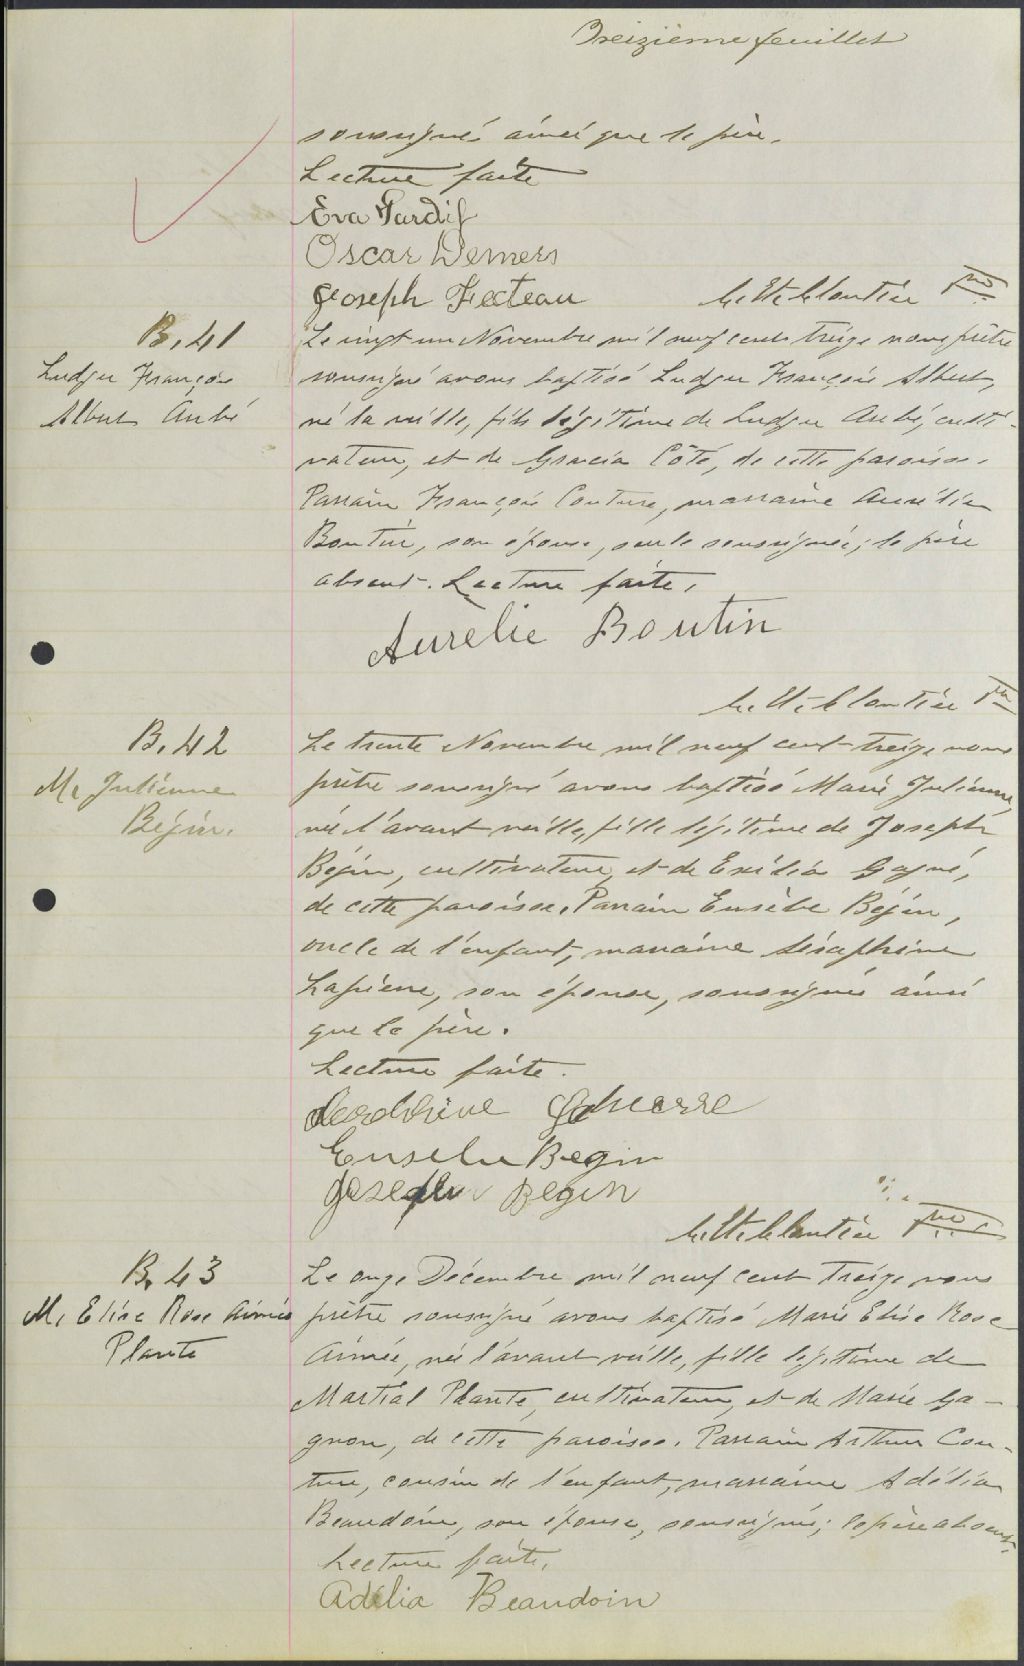 Treizième feuillet
soussignés ainsi que le père.
Lecture faite
Eva Tardif
Oscar Demers
Joseph Fecteau
B. 41
Ludger François
Albert Aubé
Le vingt un Novembre mil neuf cent treize nous prêtre
soussigné avons baptisé Ludger François Albert,
né la veille, fils légitime de Ludger Aubé, culti-
vateur, et de Gracia Côté, de cette paroisse.
Parrain François Couture, marraine Aurélie
Boutin, son épouse, seule soussignée; le père
absent. Lecture faite.
Aurelie Boutin
B. 42
M. Julienne
Bégin.
Le trente Novembre mil neuf cent treize nous
prêtre soussigné avons baptisé Marie Julienne,
née l'avant veille, fille légitime de Joseph
Bégin, cultivateur, et de Exélia Gagné,
de cette paroisse. Parrain Eusèbe Bégin,
oncle de l'enfant, marraine Séraphine
Lapierre, son épouse, soussignés ainsi
que le père.
Lecture faite.
Eusebe Begin
Joseph Begin
B. 43
M. Elise Rose Aimée
Plante
Le onze Décembre mil neuf cent treize nous
prêtre soussigné avons baptisé Marie Elise Rose
Aimée, née l'avant veille, fille légitime de
Martial Plante, cultivateur, et de Marie Ga-
gnon, de cette paroisse. Parrain Arthur Cou-
ture, cousin de l'enfant, marraine Adélia
Beaudoin, son épouse, soussignée; le père absent.
Lecture faite.
Adélia Beaudoin